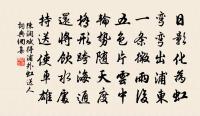 日影化為虹
彎彎出浦東
一條微雨後
五色片雲中
輪勢隨天度
橋形跨海通
還將飲水處
持送使車雄
陳潤賦得浦外虹送人
詞典網集